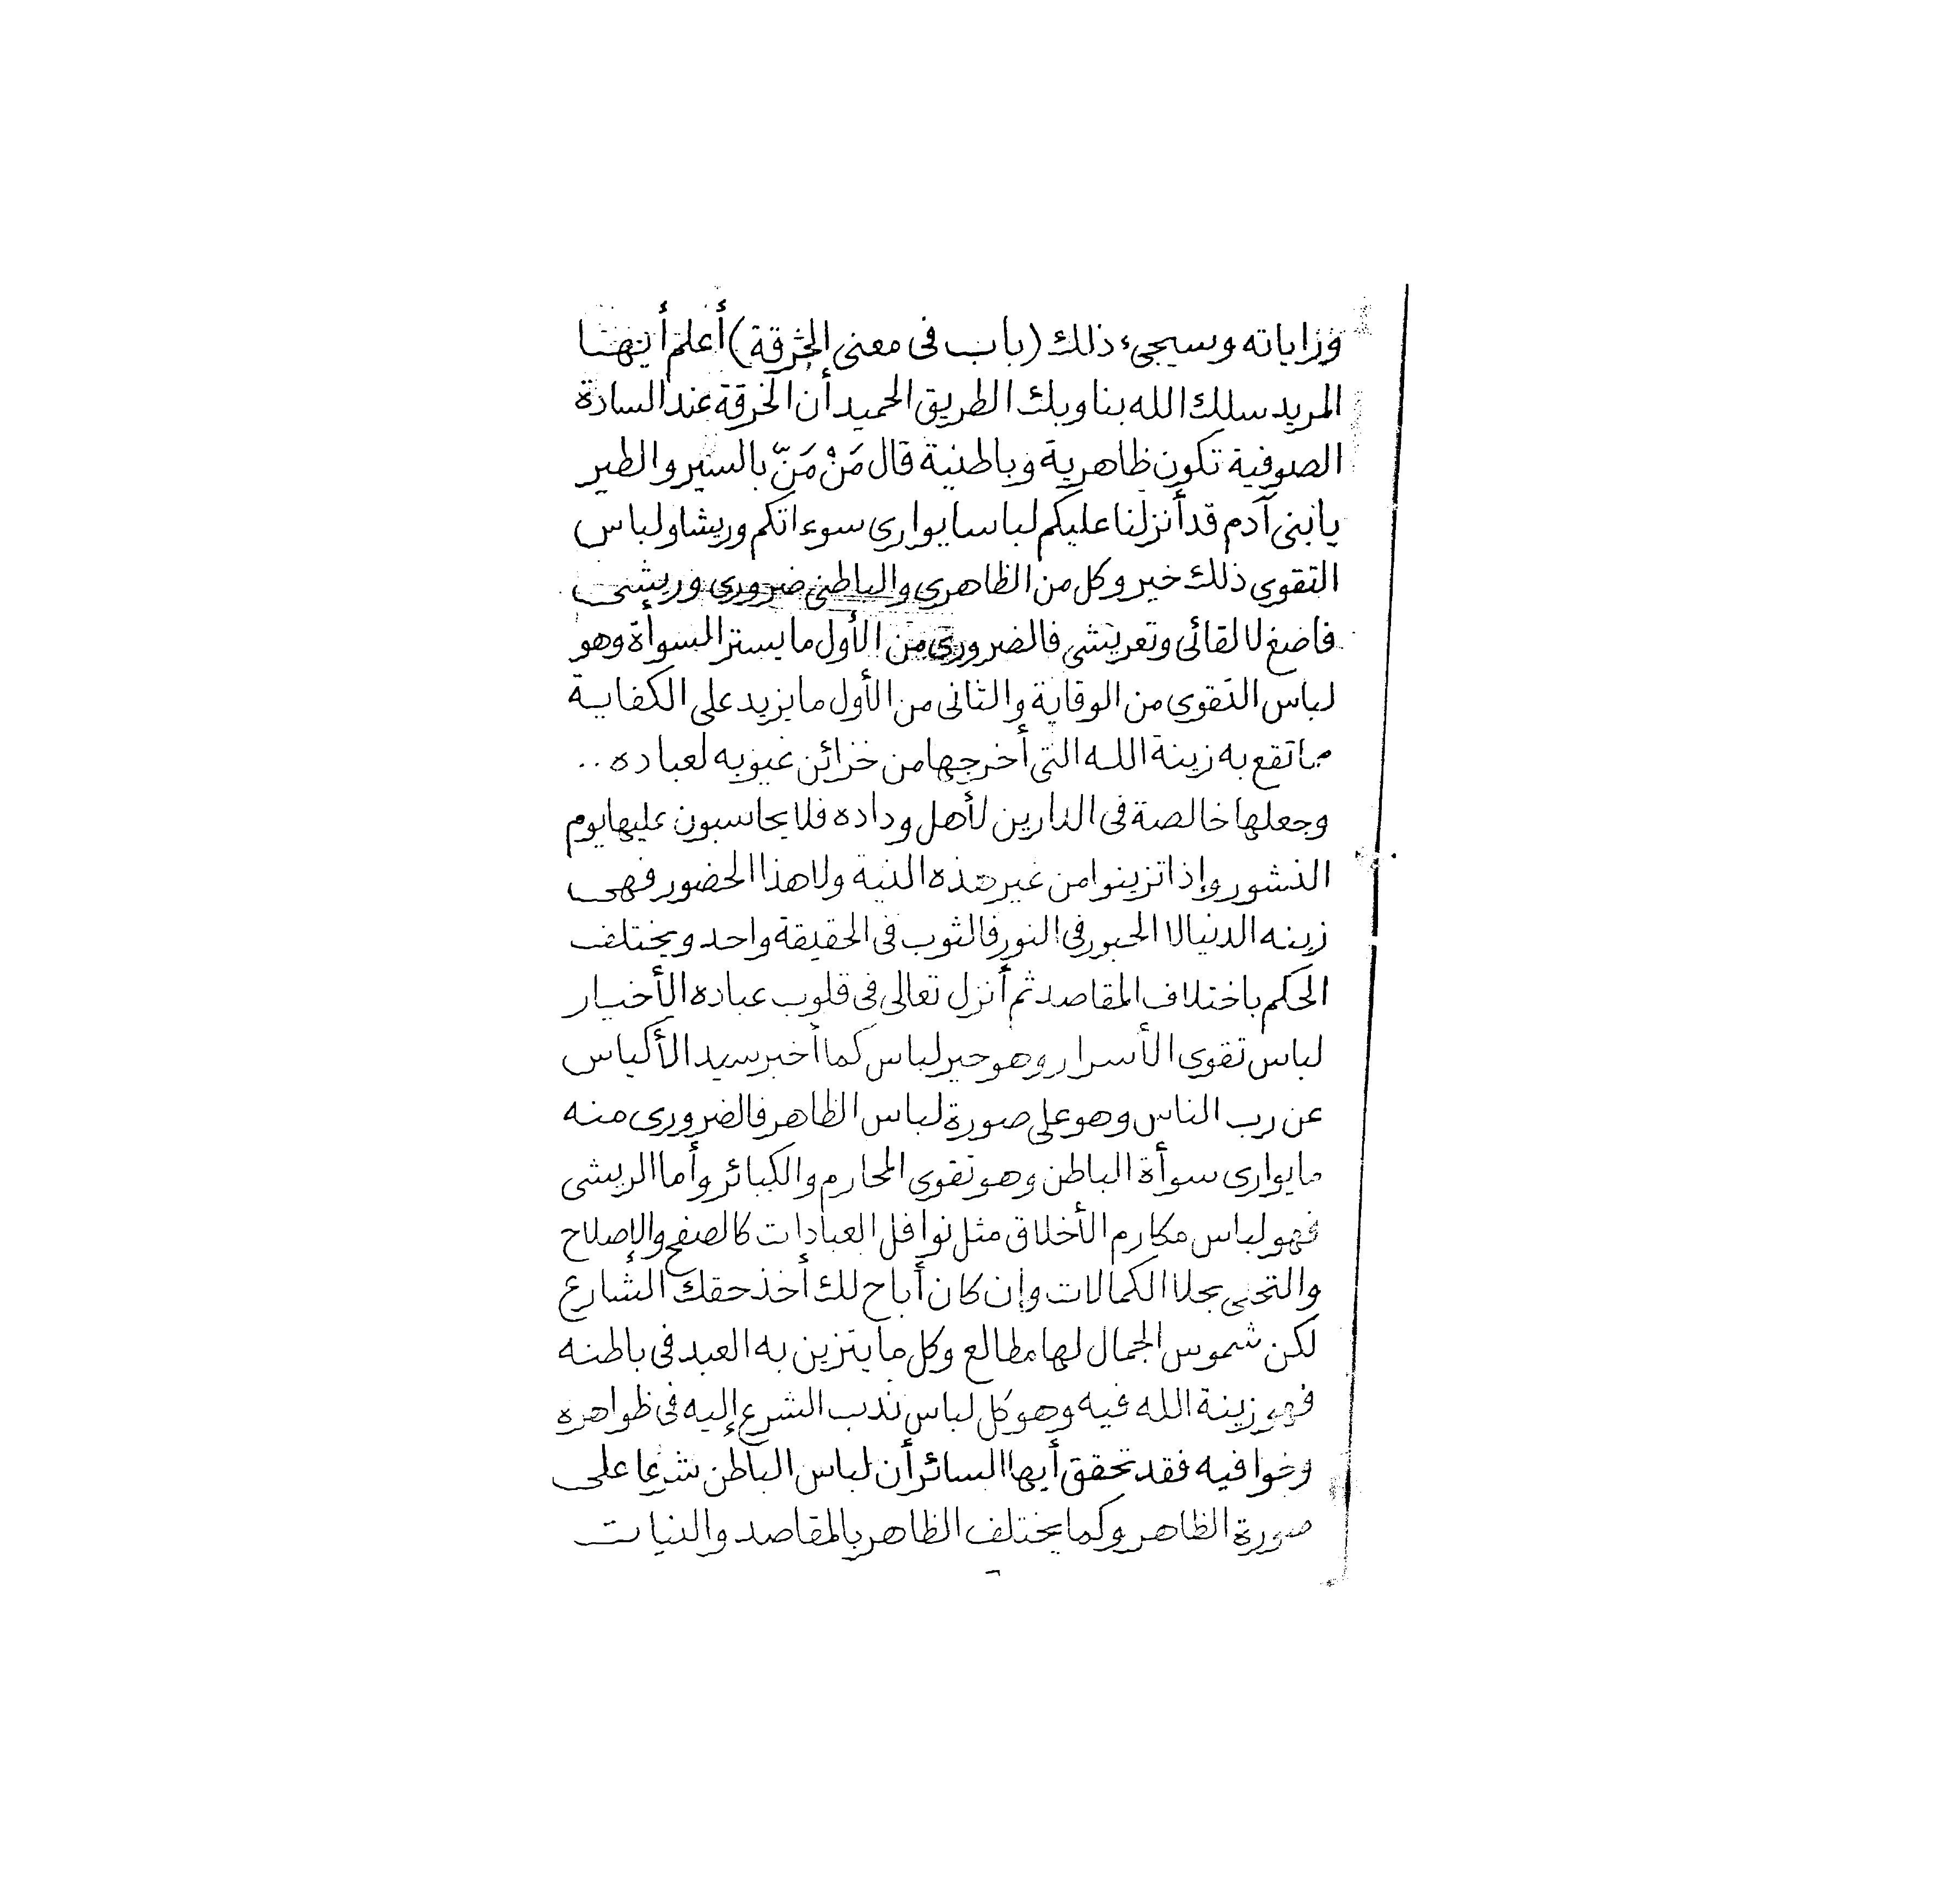 وراياته وسيجىء ذلك (باب فى معنى الخرقة) أعلم أيها
المريد سلك الله بنا وبك الطريق الحميد أن الخرقة عند السادة
الصوفية تكون ظاهرية وباطنية قال مَنْ مَنّ بالسير والطير
يابنى آدم قد أنزلنا عليكم لباسا يوارى سوءاتكم وريشا ولباس
التقوى ذلك خير وكل من الظاهرى والباطنى ضرورى وريشى
فاصغ لالقائى وتعريشى فالضرورى من الأول مايستر السوأة وهو
لباس التقوى من الوقاية والثانى من الأول مايزيد على الكفاية
ماتقع به زينة الله التى أخرجها من خزائن غيوبه لعباده ..
وجعلها خالصة فى الدارين لأهل وداده فلا يحاسبون عليها يوم
النشور وإذا تزينوا من غير هذه النية ولا هذا الحضور فهى
زينه الدنيا لا الحبور فى النور فالثوب فى الحقيقة واحد ويختلف
الحكم باختلاف المقاصد ثم أنزل تعالى فى قلوب عباده الأخيار
لباس تقوى الأسرار وهو خير لباس كما أخبر سيد الأكياس
عن رب الناس وهو على صورة لباس الظاهر فالضرورى منه
مايوارى سوأة الباطن وهو تقوى المحارم والكبائر وأما الريشى
فهو لباس مكارم الأخلاق مثل نوافل العبادات كالصفح والإصلاح
والتحلى بحلا الكمالات وإن كان أباح لك أخذ حقك الشارع
لكن شموس الجمال لها مطالع وكل مايتزين به العبد فى باطنه
فهو زينة الله فيه وهو كل لباس ندب الشرع إليه فى ظواهره
وخوافيه فقد تحقق أيها السائر أن لباس الباطن شرعا على
صورة الظاهر وكما يختلف الظاهر بالمقاصد والنيات